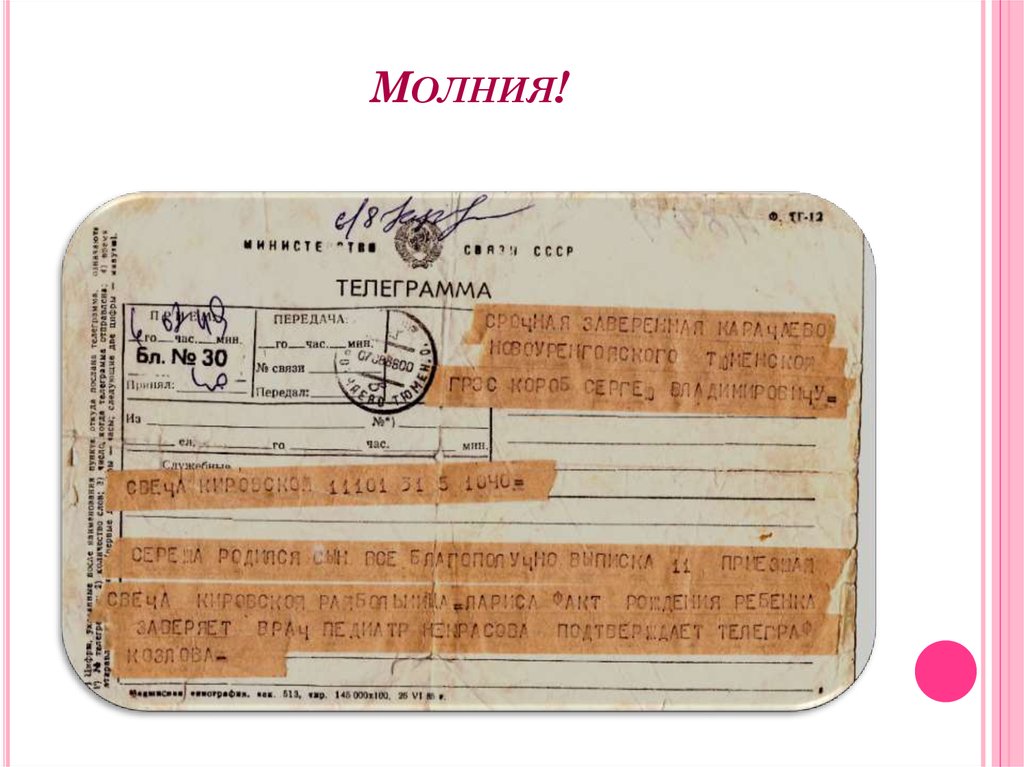 Молния!
с/8
Ф. ТГ-12
МИНИСТЕРСТВО СВЯЗИ СССР
ТЕЛЕГРАММА
ПРИЕМ:
го час. мин.
Бл. № 30
Принял:
ПЕРЕДАЧА:
го час. мин.
№ связи
Передал:
ТЮМЕН. О.
СРОЧНАЯ ЗАВЕРЕННАЯ КАРАЧАЕВО
НОВОУРЕНГОЙСКОГО ТЮМЕНСКОЙ
ГРЭС КОРОБ СЕРГЕЮ ВЛАДИМИРОВИЧУ=
Из №*)
сл. го час. мин.
Служебные
СВЕЧА КИРОВСКОЙ 11101 31 5 1040=
СЕРЕЖА РОДИЛСЯ СЫН ВСЕ БЛАГОПОЛУЧНО ВЫПИСКА 11 ПРИЕЗЖАЙ
СВЕЧА КИРОВСКОЙ РАЙБОЛЬНИЦА=ЛАРИСА ФАКТ РОЖДЕНИЯ РЕБЕНКА
ЗАВЕРЯЕТ ВРАЧ ПЕДИАТР НЕКРАСОВА ПОДТВЕРЖДАЕТ ТЕЛЕГРАФ
КОЗЛОВА=
типография. зак. 513, тир. 145 000х100, 26 VI 85 г.